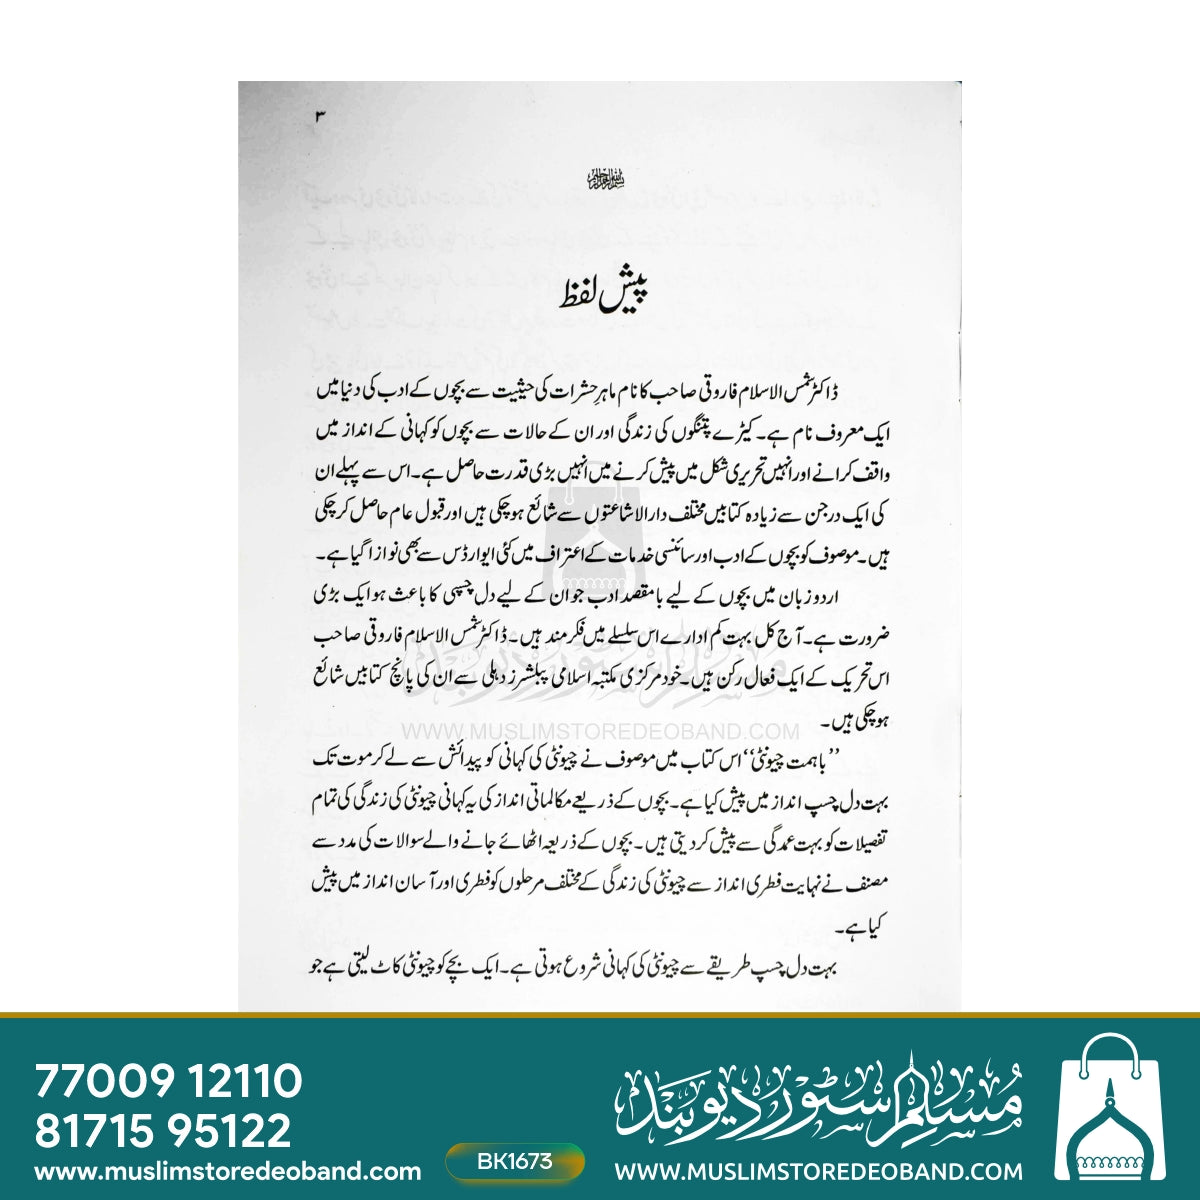 ۳
بسم اللہ الرحمن الرحیم
پیش لفظ
ڈاکٹر شمس الاسلام فاروقی صاحب کا نام ماہرِ حشرات کی حیثیت سے بچوں کے ادب کی دنیا میں
ایک معروف نام ہے۔ کیڑے پتنگوں کی زندگی اور ان کے حالات سے بچوں کو کہانی کے انداز میں
واقف کرانے اور انہیں تحریری شکل میں پیش کرنے میں انہیں بڑی قدرت حاصل ہے۔ اس سے پہلے ان
کی ایک درجن سے زیادہ کتابیں مختلف دارالاشاعتوں سے شائع ہوچکی ہیں اور قبول عام حاصل کرچکی
ہیں۔ موصوف کو بچوں کے ادب اور سائنسی خدمات کے اعتراف میں کئی ایوارڈس سے بھی نوازا گیا ہے۔
اردو زبان میں بچوں کے لیے بامقصد ادب جو ان کے لیے دل چسپی کا باعث ہو ایک بڑی
ضرورت ہے۔ آج کل بہت کم ادارے اس سلسلے میں فکرمند ہیں۔ ڈاکٹر شمس الاسلام فاروقی صاحب
اس تحریک کے ایک فعال رکن ہیں۔ خود مرکزی مکتبہ اسلامی پبلشرز دہلی سے ان کی پانچ کتابیں شائع
ہوچکی ہیں۔
’’باہمت چیونٹی‘‘ اس کتاب میں موصوف نے چیونٹی کی کہانی کو پیدائش سے لے کر موت تک
بہت دل چسپ انداز میں پیش کیا ہے۔ بچوں کے ذریعے مکالماتی انداز کی یہ کہانی چیونٹی کی زندگی کی تمام
تفصیلات کو بہت عمدگی سے پیش کردیتی ہیں۔ بچوں کے ذریعہ اٹھائے جانے والے سوالات کی مدد سے
مصنف نے نہایت فطری انداز سے چیونٹی کی زندگی کے مختلف مرحلوں کو فطری اور آسان انداز میں پیش
کیا ہے۔
بہت دل چسپ طریقے سے چیونٹی کی کہانی شروع ہوتی ہے۔ ایک بچے کو چیونٹی کاٹ لیتی ہے جو
مسلم سٹور دیوبند
WWW.MUSLIMSTOREDEOBAND.COM
77009 12110
81715 95122
www.muslimstoredeoband.com
BK1673
مُسلم سٹور دیوبند
WWW.MUSLIMSTOREDEOBAND.COM